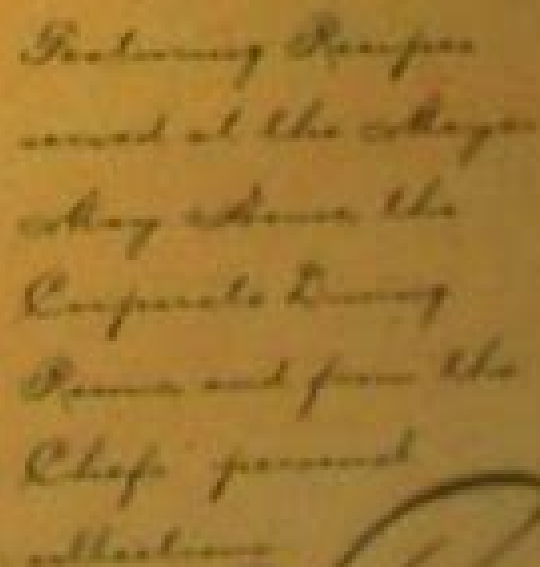 Featuring Recipes
served at the
the
Corporate Dining
Rooms and from the
Chefs' personal
collections